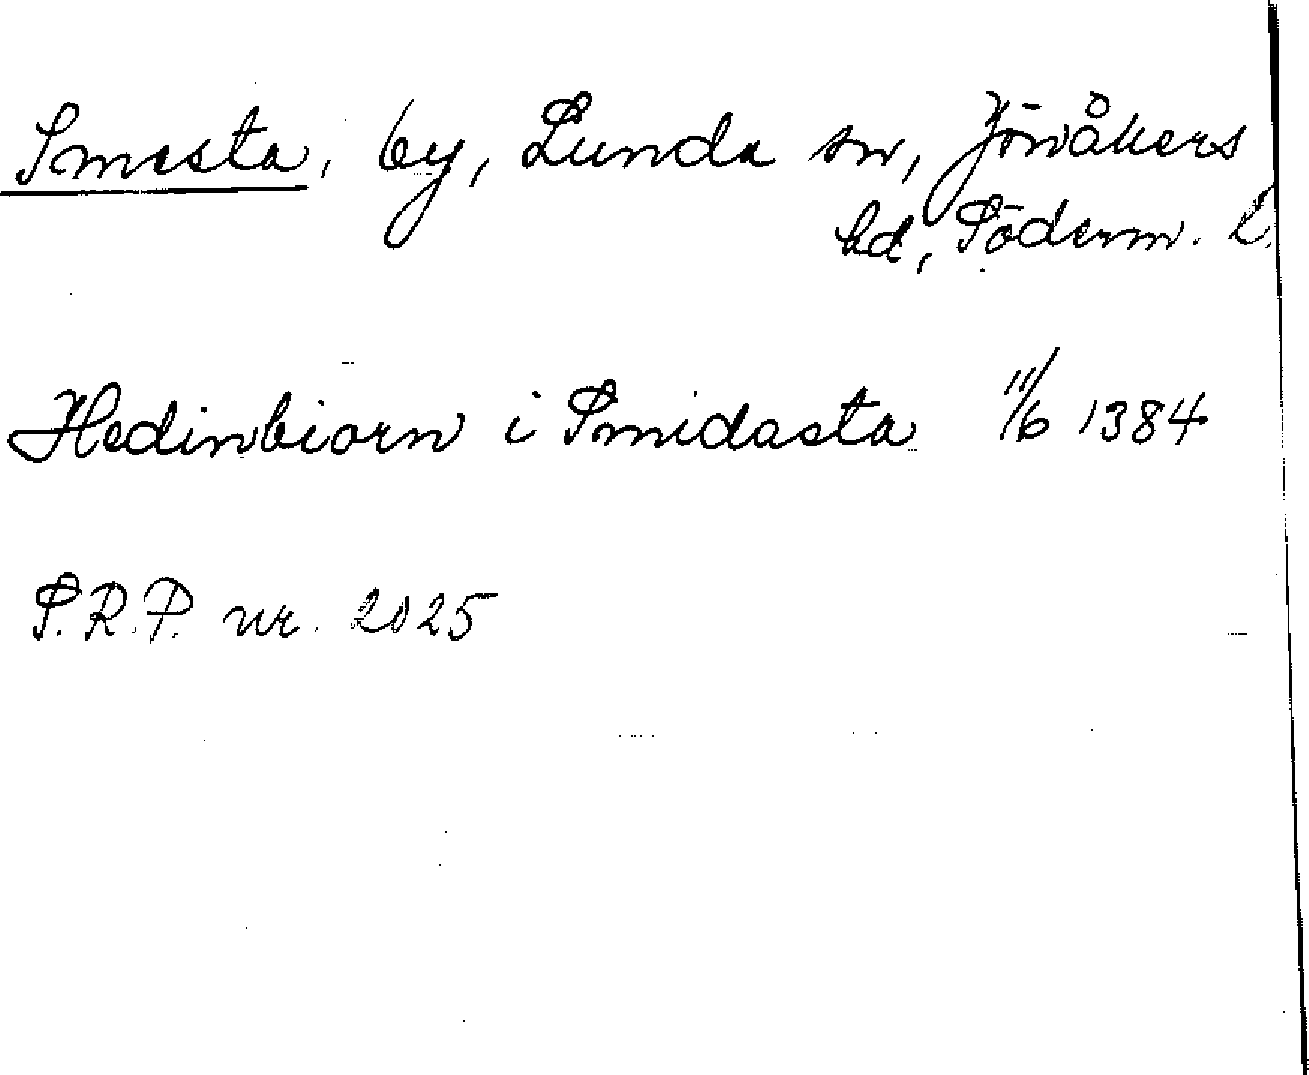 Smesta, by, Lunda sn, Jönåkers
hd, Söderm. L.
Hedinbiorn i Smidasta 11/6 1384
S.R.P. nr. 2025